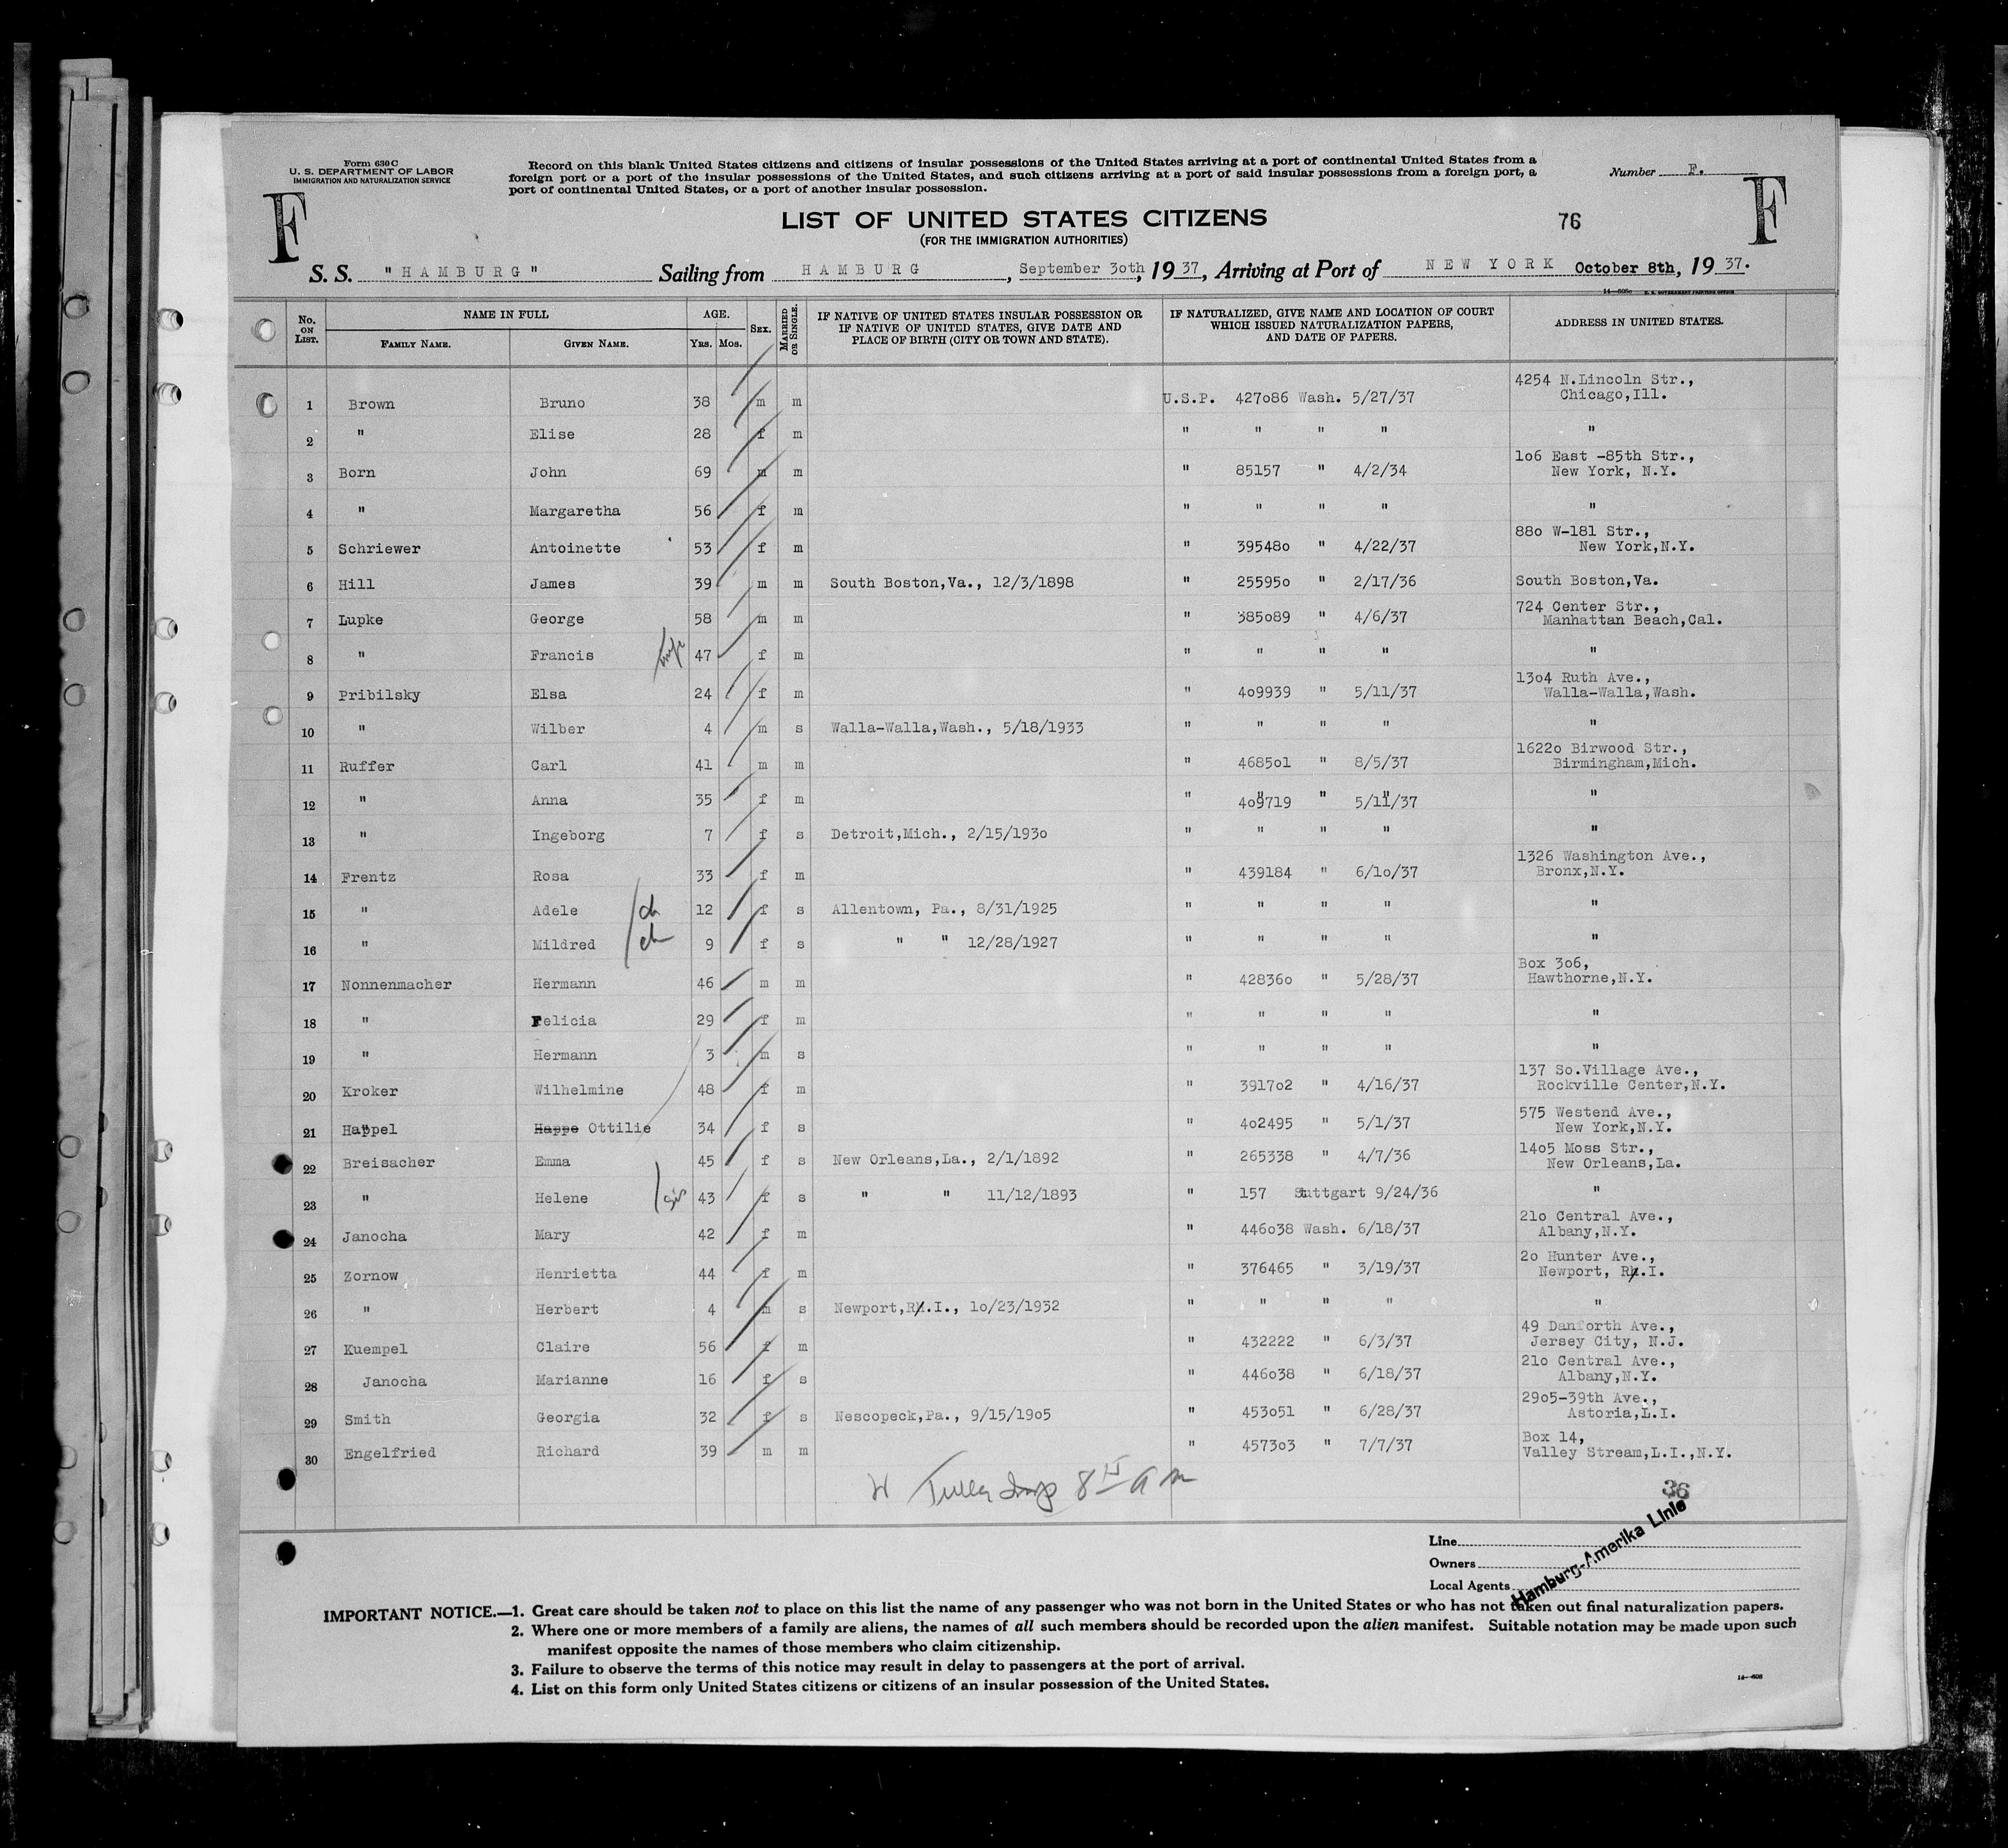 Form 630 C
U. S. DEPARTMENT OF LABOR
IMMIGRATION AND NATURALIZATION SERVICE
Record on this blank United States citizens and citizens of insular possessions of the United States arriving at a port of continental United States from a
foreign port or a port of the insular possessions of the United States, and such citizens arriving at a port of said insular possessions from a foreign port, a
port of continental United States, or a port of another insular possession.
Number F.
F F
LIST OF UNITED STATES CITIZENS
(FOR THE IMMIGRATION AUTHORITIES)
76
S. S. "HAMBURG" Sailing from HAMBURG, September 30th, 1937, Arriving at Port of NEW YORK October 8th, 1937.
No. ON LIST. NAME IN FULL FAMILY NAME. GIVEN NAME. AGE. YRS. MOS. SEX. MARRIED OR SINGLE. IF NATIVE OF UNITED STATES INSULAR POSSESSION OR IF NATIVE OF UNITED STATES, GIVE DATE AND PLACE OF BIRTH (CITY OR TOWN AND STATE). IF NATURALIZED, GIVE NAME AND LOCATION OF COURT WHICH ISSUED NATURALIZATION PAPERS, AND DATE OF PAPERS. ADDRESS IN UNITED STATES.
1 Brown Bruno 38 m m U.S.P. 427086 Wash. 5/27/37 4254 N.Lincoln Str., Chicago,Ill.
2 " Elise 28 f m " " " " "
3 Born John 69 m m " 85157 " 4/2/34 106 East -85th Str., New York, N.Y.
4 " Margaretha 56 f m " " " " "
5 Schriewer Antoinette 53 f m " 395480 " 4/22/37 880 W-181 Str., New York,N.Y.
6 Hill James 39 m m South Boston,Va., 12/3/1898 " 255950 " 2/17/36 South Boston,Va.
7 Lupke George 58 m m " 385089 " 4/6/37 724 Center Str., Manhattan Beach,Cal.
8 " Francis wife 47 f m " " " " "
9 Pribilsky Elsa 24 f m " 409939 " 5/11/37 1304 Ruth Ave., Walla-Walla,Wash.
10 " Wilber 4 m s Walla-Walla,Wash., 5/18/1933 " " " " "
11 Ruffer Carl 41 m m " 468501 " 8/5/37 16220 Birwood Str., Birmingham,Mich.
12 " Anna 35 f m " 409719 " 5/11/37 "
13 " Ingeborg 7 f s Detroit,Mich., 2/15/1930 " " " " "
14 Frentz Rosa 33 f m " 439184 " 6/10/37 1326 Washington Ave., Bronx,N.Y.
15 " Adele ch 12 f s Allentown, Pa., 8/31/1925 " " " " "
16 " Mildred ch 9 f s " " 12/28/1927 " " " " "
17 Nonnenmacher Hermann 46 m m " 428360 " 5/28/37 Box 306, Hawthorne,N.Y.
18 " Felicia 29 f m " " " " "
19 " Hermann 3 m s " " " " "
20 Kroker Wilhelmine 48 f m " 391702 " 4/16/37 137 So.Village Ave., Rockville Center,N.Y.
21 Happel Happe Ottilie 34 f s " 402495 " 5/1/37 575 Westend Ave., New York,N.Y.
22 Breisacher Emma 45 f s New Orleans,La., 2/1/1892 " 265338 " 4/7/36 1405 Moss Str., New Orleans,La.
23 " Helene sis 43 f s " " 11/12/1893 " 157 Stuttgart 9/24/36 "
24 Janocha Mary 42 f m " 446038 Wash. 6/18/37 210 Central Ave., Albany,N.Y.
25 Zornow Henrietta 44 f m " 376465 " 3/19/37 20 Hunter Ave., Newport, R.I.
26 " Herbert 4 m s Newport,R.I., 10/23/1932 " " " " "
27 Kuempel Claire 56 f m " 432222 " 6/3/37 49 Danforth Ave., Jersey City, N.J.
28 Janocha Marianne 16 f s " 446038 " 6/18/37 210 Central Ave., Albany,N.Y.
29 Smith Georgia 32 f s Nescopeck,Pa., 9/15/1905 " 453051 " 6/28/37 2905-39th Ave., Astoria,L.I.
30 Engelfried Richard 39 m m " 457303 " 7/7/37 Box 14, Valley Stream,L.I.,N.Y.
36
Line
Owners
Local Agents
Hamburg-Amerika Linie
IMPORTANT NOTICE.—1. Great care should be taken not to place on this list the name of any passenger who was not born in the United States or who has not taken out final naturalization papers.
2. Where one or more members of a family are aliens, the names of all such members should be recorded upon the alien manifest. Suitable notation may be made upon such
manifest opposite the names of those members who claim citizenship.
3. Failure to observe the terms of this notice may result in delay to passengers at the port of arrival.
4. List on this form only United States citizens or citizens of an insular possession of the United States.
14—608